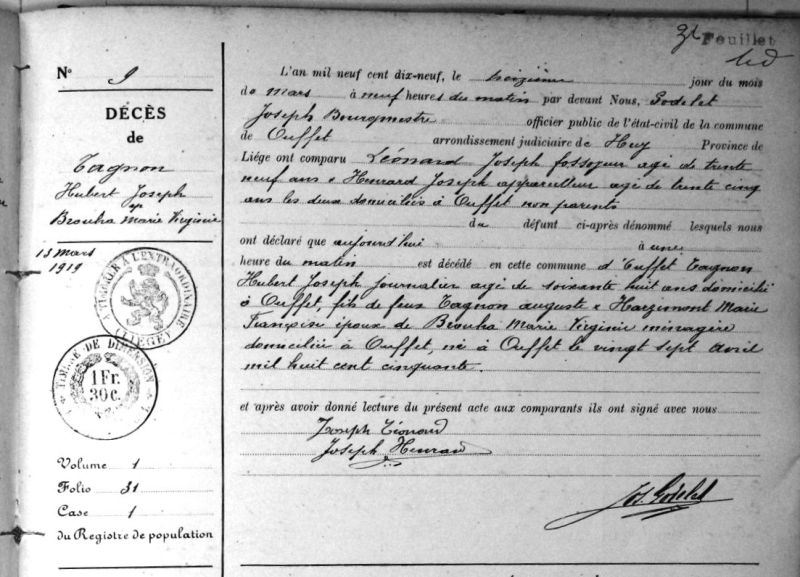 31 Feuillet
N° 9
DÉCÈS
de
Tagnon
Hubert Joseph
ép
Brouha Marie Virginie
13 mars
1919
A TIMBRE A L'EXTRAORDINAIRE
(LIEGE)
TIMBRE DE DIMENSION
1 Fr.
30 c.
Volume 1
Folio 31
Case 1
du Registre de population
L'an mil neuf cent dix-neuf, le treizième jour du mois
de mars à neuf heures du matin par devant Nous, Godelet
Joseph Bourgmestre officier public de l'état-civil de la commune
de Ouffet arrondissement judiciaire de Huy Province de
Liége ont comparu Léonard Joseph fossoyeur agé de trente
neuf ans & Henrard Joseph appariteur agé de trente cinq
ans les deux domiciliés à Ouffet non parents
du défunt ci-après dénommé lesquels nous
ont déclaré que aujourd'hui à une
heure du matin est décédé en cette commune d'Ouffet Tagnon
Hubert Joseph journalier agé de soixante huit ans domicilié
à Ouffet, fils de feux Tagnon auguste & Harzimont Marie
Françoise époux de Brouha Marie Virginie ménagère
domiciliée à Ouffet, né à Ouffet le vingt sept avril
mil huit cent cinquante.
et après avoir donné lecture du présent acte aux comparants ils ont signé avec nous
Joseph Léonard
Joseph Henrard
Jos. Godelet